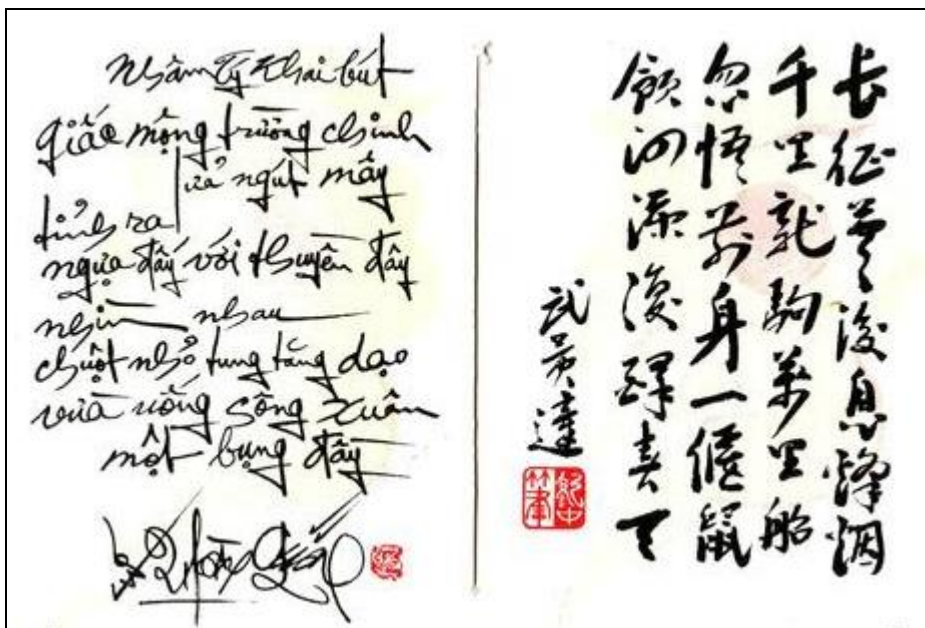 Nhâm Tý Khai bút
giấc mộng trường chinh
ngút mây
tỉnh ra
ngựa đấy với thuyền đây
nhìn nhau
chuột nhỏ tung tăng dạo
vừa uống sông Xuân
một bụng đầy
长征夢後息烽烟
千里龍駒萬里船
忽悟前身一偃鼠
飲河後春天
武黄達